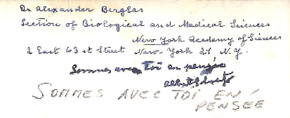 Dr Alexander Berglas
Section of Biological and Medical Sciences
New York Academy of Sciences
2 East 63 rd Street New-York 21 N.Y.
Sommes avec toi en pensée
Albert Schweitzer
SOMMES AVEC TOI EN
PENSÉE